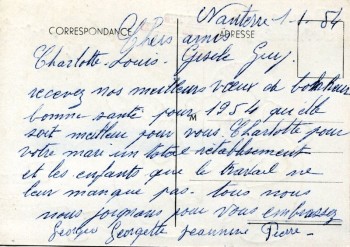 Nanterre 1-1-54
CORRESPONDANCE
ADRESSE
Chers amis
Charlotte. Louis. Gisèle Guy.
recevez nos meilleurs vœux de bonheur
bonne santé pour 1954 qu'elle
soit meilleur pour vous. Charlotte pour
votre mari un total rétablissement
et les enfants que le travail ne
leur manque pas. tous nous
nous joignons pour vous embrasser
Georges Georgette Jeannine Pierre